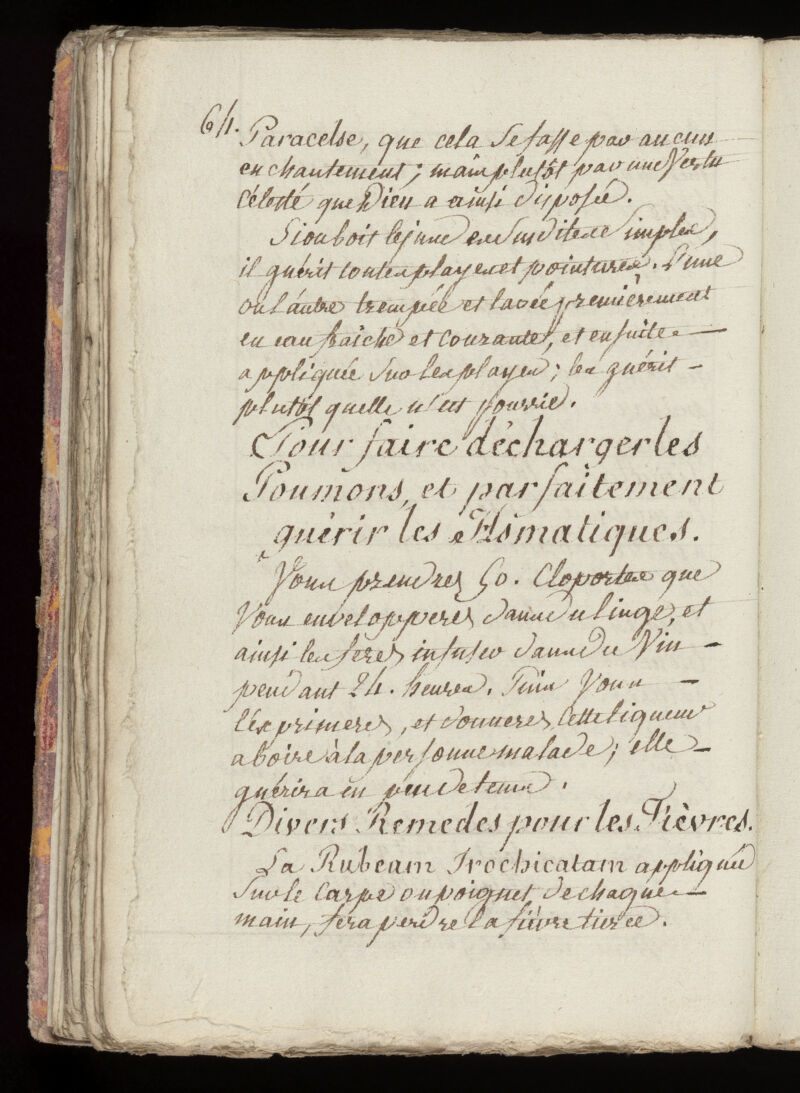 64.
Paracelse, que cela se fasse par aucun
enchantement; mais plutôt par une Vertu
Céleste que Dieu a ainsi disposée.
Si on boit le jus des susdites simples,
il guérit toutes playes et pointures. L'une
ou l'autre trempée et lavée premièrement
en eau fraîche et courante, et ensuite
appliquée sur les playes; les guérit
plutôt quelle n'est pourrie.
Pour faire décharger les
Poumons, et parfaitement
guérir les Asmatiques.
Vous prendrez 50. Cloportes que
Vous envelopperez dans du linge, et
ainsi les ferez infuser dans du Vin
pendant 24. heures. Puis Vous
l'exprimerez, et donnerez cette liqueur
a boire à la personne malade; elle
guérira en peu de tems.
Divers Remedes pour les Fièvres.
La Rubeam Trochicatam appliquée
sur le Carpe ou poignet de chaque
main, fera perdre la fièvre tierce.